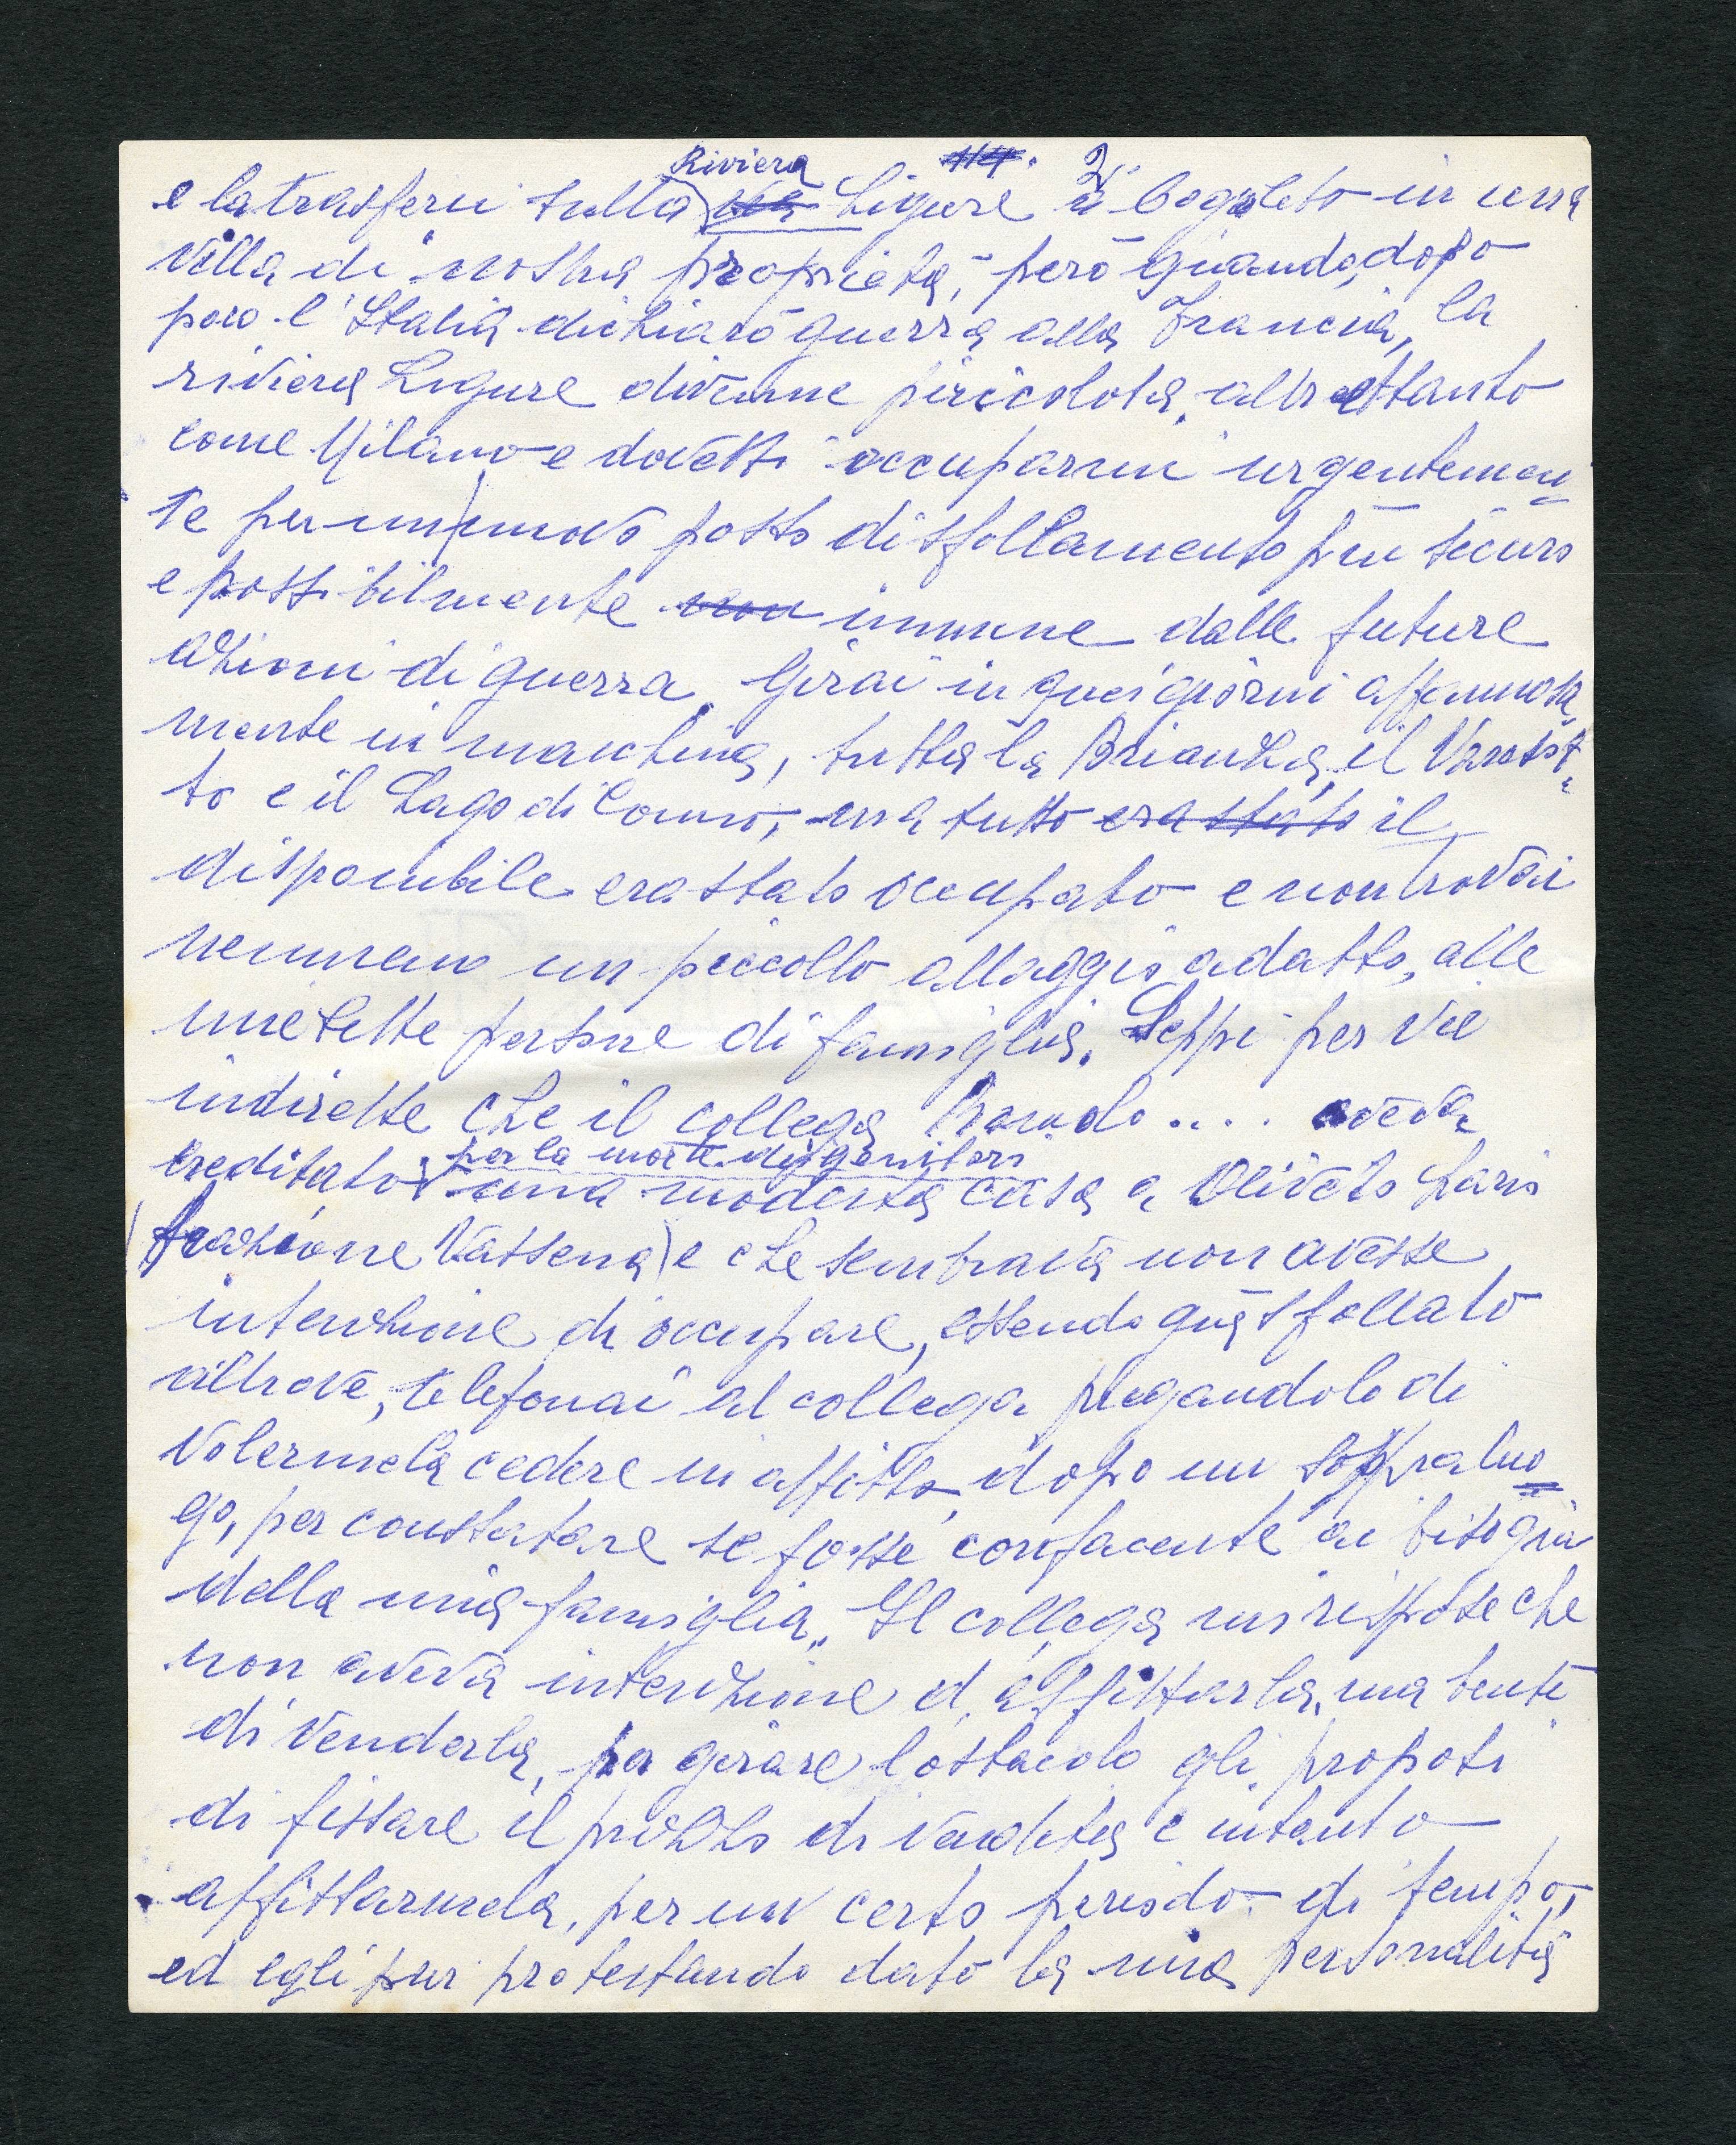 114. 2
e la trasferii sulla Riviera Ligure a Cogoleto in una
villa di nostra proprietà, però quando, dopo
poco l'Italia dichiarò guerra alla Francia, la
riviera Ligure divenne pericolosa, altrettanto
come Milano e dovetti occuparmi urgentemen
te per un nuovo posto di sfollamento più sicuro
e possibilmente non immune dalle future
azioni di guerra. Girai in quei giorni affannosa
mente in macchina, tutta la Brianza, il Varesot
to e il Lago di Como, ma tutto era stato il
disponibile era stato occupato e non trovai
nemmeno un piccollo alloggio adatto, alle
mie sette persone di famiglia. Seppi per vie
indirette che il collega .... aveva
ereditato per la morte dei genitori
una modesta casa a Oliveto Lario
(frazione Vassena) e che sembrava non avesse
intenzione di occupare, essendo già sfollato
altrove, telefonai al collega pregandolo di
volermela cedere in affitto, dopo un sopraluo
go, per constatare se fosse confacente ai bisogni
della mia famiglia. Il collega mi rispose che
non aveva intenzione d'affittarla, ma bensì
di venderla, per girare l'ostacolo gli proposi
di fissare il prezzo di vendita e intanto
affittarmela, per un certo periodo di tempo,
ed egli pur protestando dato la mia personalità